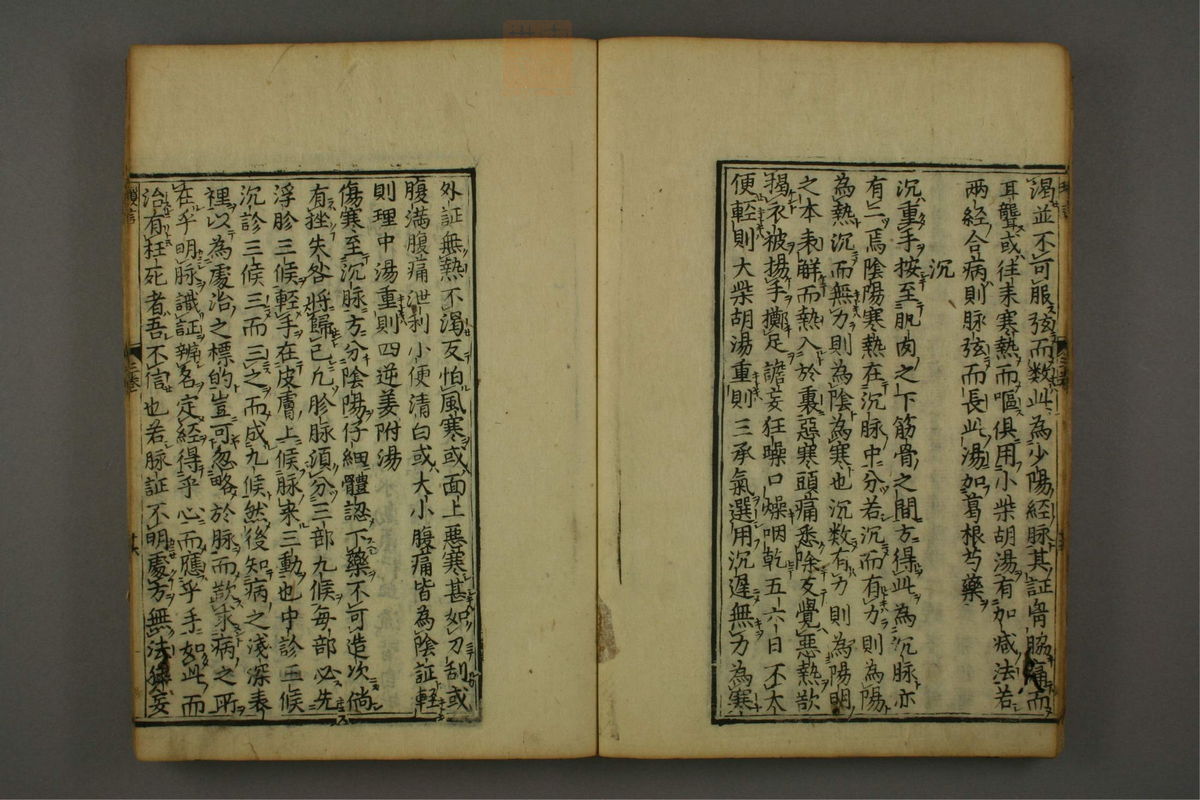 渇並不可服弦而数此為少陽経脉其証胷脇痛而
耳聾或往来寒熱而嘔俱用小柴胡湯有加减法若
両経合病則脉弦而長此湯加葛根芍藥
沉
沉重手按至肌肉之下筋骨之間方得此為沉脉亦
有二焉陰陽寒熱在沉脉中分若沉而有力則為陽
為熱沉而無力則為陰為寒也沉数有力則為陽明
之本表解而熱入於裏惡寒頭痛悉除反覺惡熱欲
掲衣被揚手擲足譫妄狂躁口燥咽乾五六日不大
便軽則大柴胡湯重則三承氣選用沉遅無力為寒
外証無熱不渇反怕風寒或面上惡寒甚如刀刮或
腹満腹痛泄利小便清白或大小腹痛皆為陰証軽
則理中湯重則四逆姜附湯
傷寒至沉脉方分陰陽仔細體認下藥不可造次倘
有挫失咎將歸已凢胗脉須分三部九候毎部必先
浮胗三候軽手在皮膚上候脉来三動也中診三候
沉診三候三而三之而成九候然後知病之淺深表
裡以為處治之標的豈可忽略於脉而歎求病之所
在乎明脉識証辨名定経得乎心而應乎手如此而
治有枉死者吾不信也若脉証不明處方無法妄
三巻